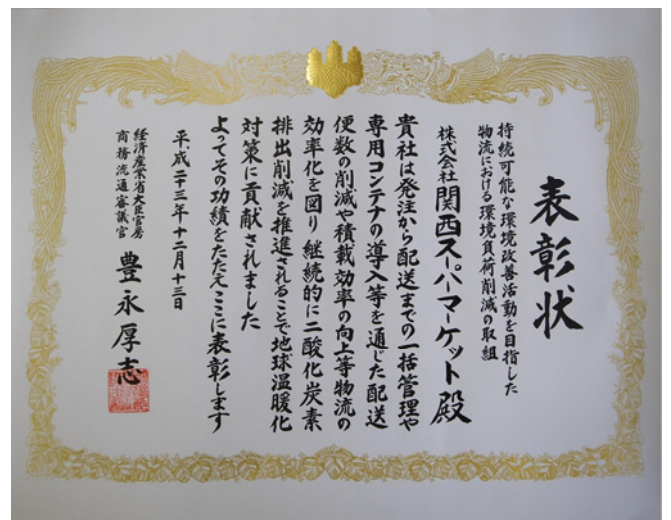 表彰状
持続可能な環境改善活動を目指した
物流における環境負荷削減の取組
株式会社関西スーパーマーケット殿
貴社は発注から配送までの一括管理や
専用コンテナの導入等を通じた配送
便数の削減や積載効率の向上等物流の
効率化を図り継続的に二酸化炭素
排出削減を推進されることで地球温暖化
対策に貢献されました
よってその功績をたたえここに表彰します
平成二十三年十二月十三日
経済産業省大臣官房
商務流通審議官
豊永厚志